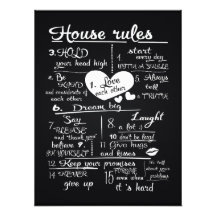 House rules
3. HOLD
your head high
4 start
every day
WITH A SMILE
2. Be
KIND
and considerate of
each other
1. Love
each other
5. Always
tell
the
TRUTH
6. Dream big
7 Say
PLEASE
AND
"thank you"
8 Laugh
a lot
9 don't be
afraid
10 believe in
YOURSELF
11 Give hugs
and kisses
12 Keep your promises
14 NEVER
give up
15 FORGIVE
even when
it's hard